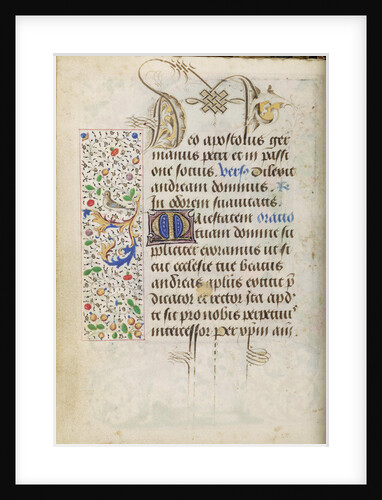 Deo apostolus ger
manus petri et in passi
one socius. Vers. Dilexit
andream dominus. R.
In odorem suauitatis.
Maiestatem Oratio
tuam domine su
pliciter exoramus ut si
cut ecclesie tue beatus
andreas aplus extitit p
dicator et rector ita apd
te sit pro nobis perpetuus
intercessor Per xpm am